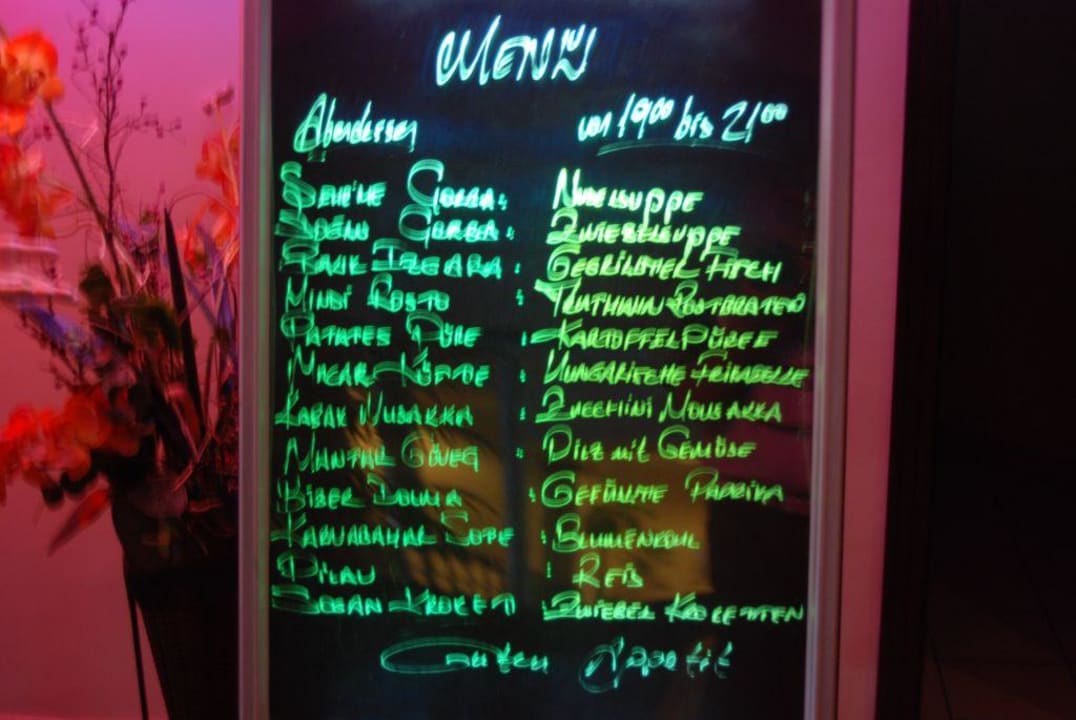 MENU
Abendessen von 19⁰⁰ bis 21⁰⁰
ŞEHİRE ÇORBA: NUDELSUPPE
SOĞAN ÇORBA: ZWIEBELSUPPE
BALIK IZGARA: GEGRILLTER FISCH
HINDI ROSTO: TRUTHAHN ROSTBRATEN
PATATES PÜRE: KARTOFFELPÜREE
MACAR KÖFTE: UNGARISCHE FRIKADELLE
KABAK MUSAKKA: ZUCCHINI MOUSAKKA
MANTAR GÜVEÇ: PILZ mit GEMÜSE
BIBER DOLMA: GEFÜLLTE PAPRIKA
KARNABAHAR SOTE: BLUMENKOHL
PILAV: REIS
SOĞAN KROKET: ZWIEBEL KROKETTEN
Guten Appetit